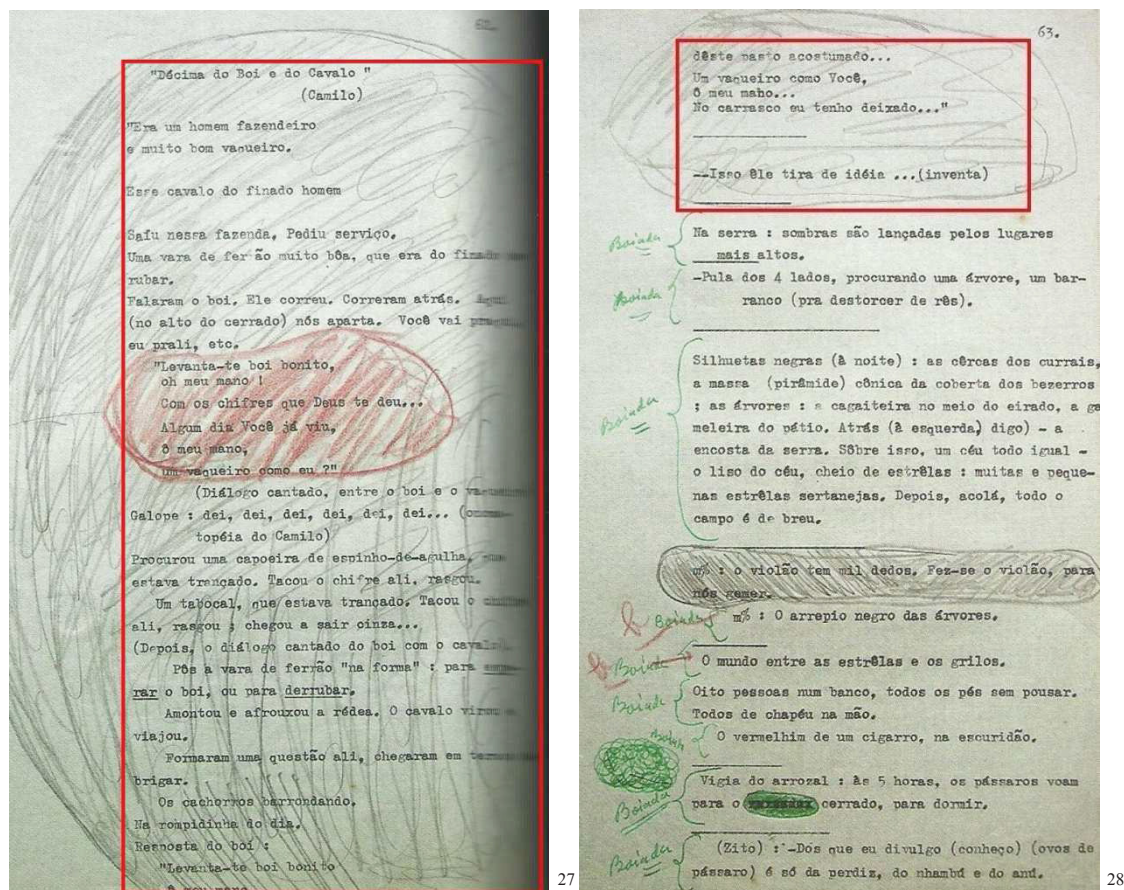 62.
"Décima do Boi e do Cavalo "
(Camilo)
"Era um homem fazendeiro
e muito bom vaqueiro.
Esse cavalo do finado homem
Saíu nessa fazenda. Pediu serviço.
Uma vara de fer ão muito bôa, que era do finado
rubar.
Falaram o boi. Ele correu. Correram atrás.
(no alto do cerrado) nós aparta. Você vai
eu prali, etc.
"Levanta-te boi bonito,
oh meu mano !
Com os chifres que Deus te deu...
Algum dia Você já viu,
ô meu mano,
um vaqueiro como eu ?"
(Diálogo cantado, entre o boi e o
Galope : dei, dei, dei, dei, dei, dei...
topéia do Camilo)
Procurou uma capoeira de espinho-de-agulha,
estava trançado. Tacou o chifre ali, rasgou.
Um tabocal, que estava trançado. Tacou o chifre
ali, rasgou ; chegou a sair cinza...
(Depois, o diálogo cantado do boi com o
Pôs a vara de ferrão "na forma" : para
rar o boi, ou para derrubar.
Amontou e afrouxou a rédea. O cavalo
viajou.
Formaram uma questão ali, chegaram em
brigar.
Os cachorros barrondando.
Na rompidinha do dia.
Resposta do boi :
"Levanta-te boi bonito
ô meu mano
27
63.
dêste pasto acostumado...
Um vaqueiro como Você,
ô meu maho...
No carrasco eu tenho deixado..."
--Isso êle tira de idéia ...(inventa)
Boiada
Na serra : sombras são lançadas pelos lugares
mais altos.
Boiada
-Pula dos 4 lados, procurando uma árvore, um bar-
ranco (pra destorcer de rês).
Boiada
Silhuetas negras (à noite) : as cêrcas dos currais,
a massa (pirâmide) cônica da coberta dos bezerros
; as árvores : a cagaiteira no meio do eirado, a ga
meleira do pátio. Atrás (à esquerda, digo) - a
encosta da serra. Sôbre isso, um céu todo igual -
o liso do céu, cheio de estrêlas : muitas e peque-
nas estrêlas sertanejas. Depois, acolá, todo o
campo é de breu.
m% : o violão tem mil dedos. Fez-se o violão, para
nós gemer.
Boiada
m% : O arrepio negro das árvores.
Boiada
O mundo entre as estrêlas e os grilos.
Boiada
Oito pessoas num banco, todos os pés sem pousar.
Todos de chapéu na mão.
O vermelhim de um cigarro, na escuridão.
Boiada
Vigia do arrozal : às 5 horas, os pássaros voam
para o cerrado, para dormir.
Boiada
(Zito) :-Dos que eu divulgo (conheço) (ovos de
pássaro) é só da perdiz, do nhambú e do anú.
28